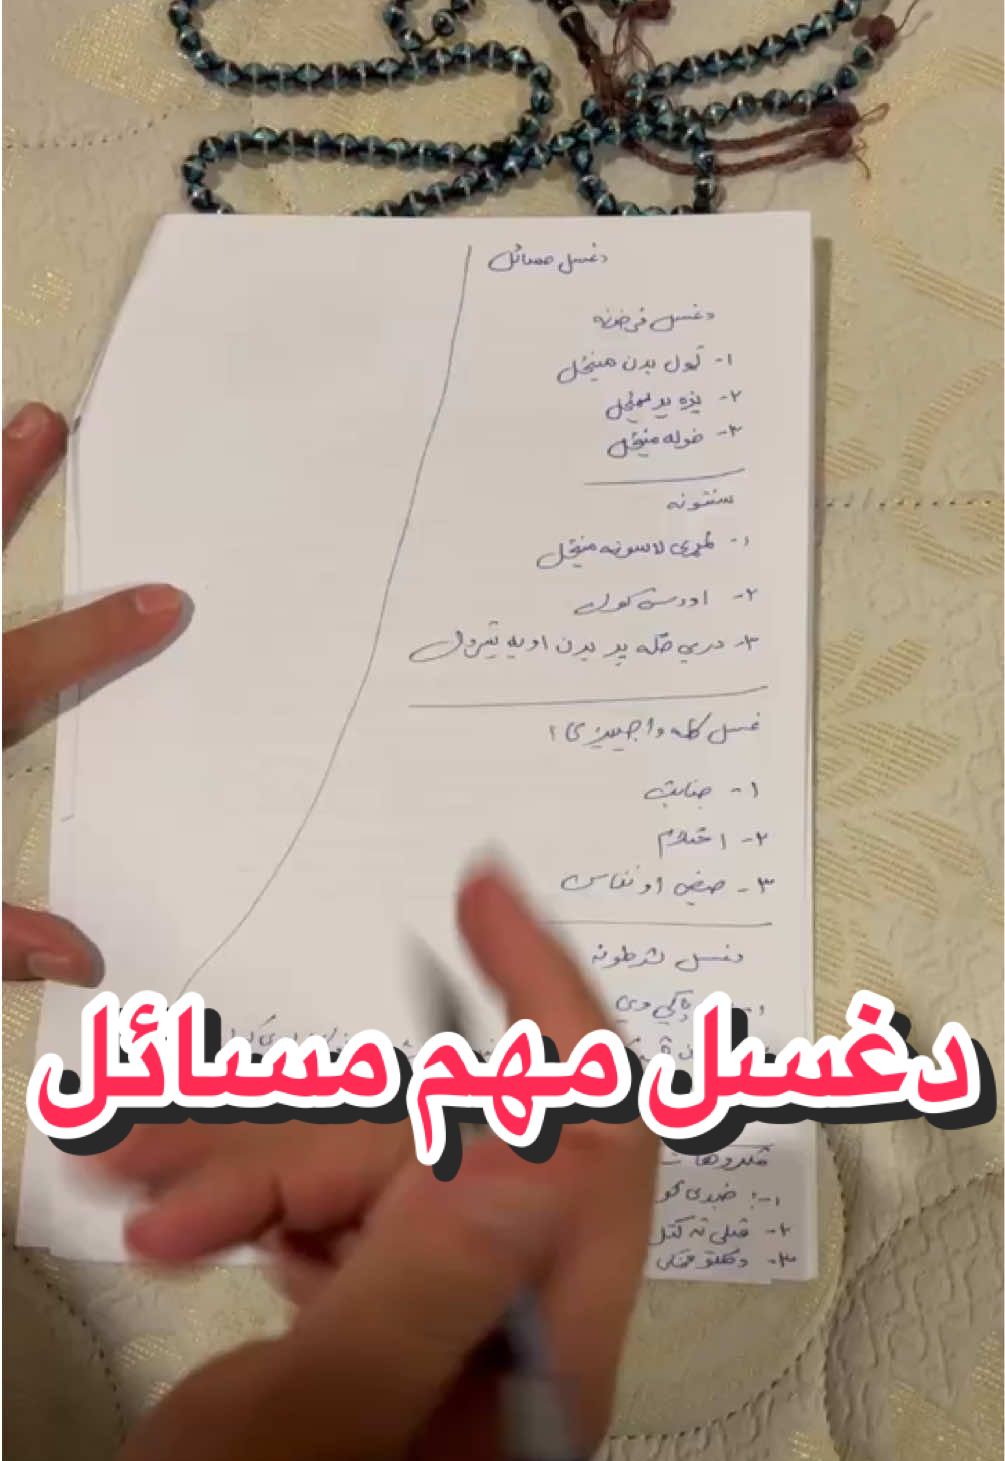 دغسل مسائل
دغسل فرضونه
۱- ټول بدن مینځل
۲- پزه مینځل
۳- خوله مینځل
سنتونه
۱- لمړی لاسونه مینځل
۲- اودس کول
۳- دری ځله په بدن اوبه تیرول
غسل کله واجبیږی؟
۱- جنابت
۲- احتلام
۳- حیض او نفاس
دغسل شرطونه
۱- پاکي وي
دغسل مهم مسائل
مکروهات
۱- خبری کو
۲- قبلی ته کتل
۳-